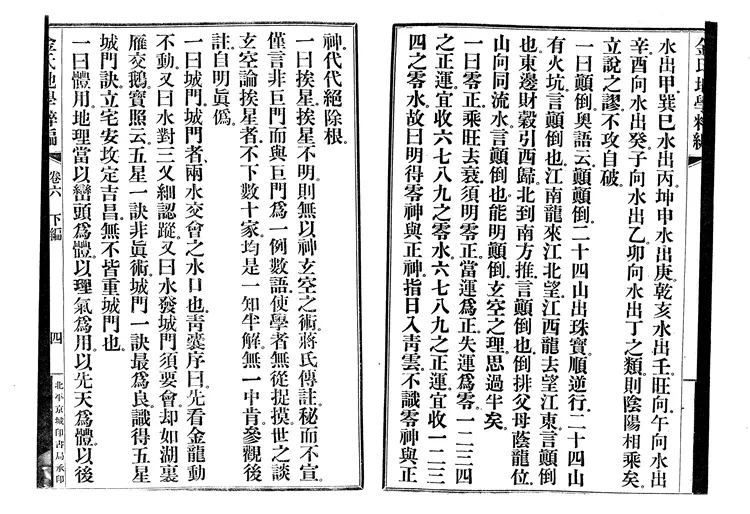 金氏地學粹編
水出甲巽巳水出丙坤申水出庚乾亥水出壬旺向午向水出
辛酉向水出癸子向水出乙卯向水出丁之類則陰陽相乘矣
立說之謬不攻自破
一曰顛倒奥語云顛顛倒二十四山出珠寶順逆行二十四山
有火坑言顛倒也江南龍來江北望江西龍去望江東言顛倒
也東邊財穀引西歸北到南方推言顛倒也倒排父母蔭龍位
山向同流水言顛倒也能明顛倒玄空之理思過半矣
一曰零正乘旺去衰須明零正當運爲正失運爲零一二三四
之正運宜收六七八九之零水六七八九之正運宜收一二三
四之零水故曰明得零神與正神指日入青雲不識零神與正
神代代絕除根
一曰挨星挨星不明則無以神玄空之術蔣氏傳註秘而不宣
僅言非巨門而與巨門爲一例數語使學者無從捉摸世之談
玄空論挨星者不下數十家均是一知半解無一中肯參觀後
註自明眞僞
一曰城門城門者兩水交會之水口也靑囊序曰先看金龍動
不動又曰水對三叉細認蹤又曰水發城門須要會却如湖裏
雁交鵝寶照云五星一訣非眞術城門一訣最爲良識得五星
城門訣立宅安攻定吉昌無不皆重城門也
一曰體用地理當以巒頭爲體以理氣爲用以先天爲體以後
金氏地學粹編
卷六
下編
四
北平京城印書局承印